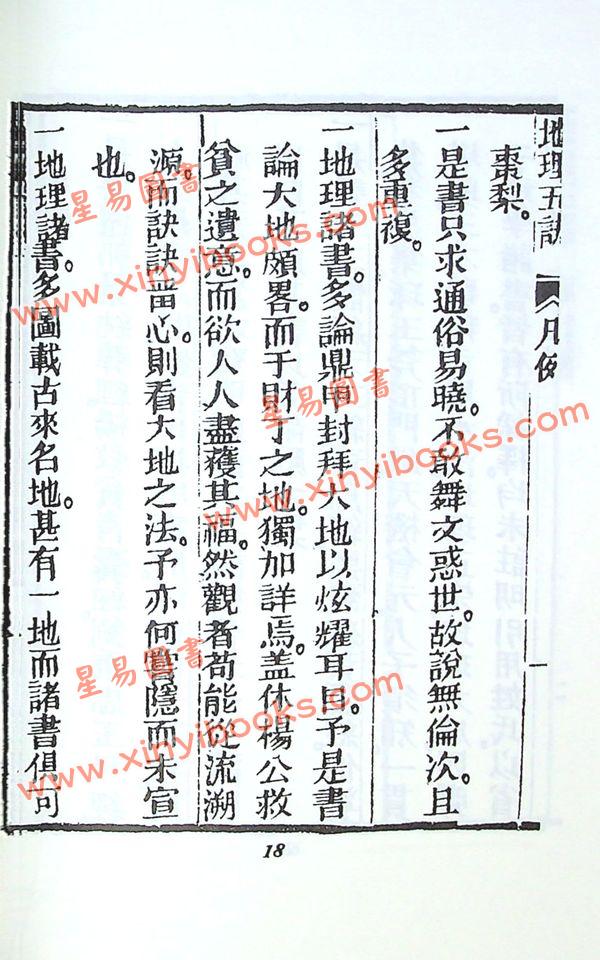 地理五訣 凡例
棗梨。
一是書只求通俗易曉。不敢舞文惑世。故說無倫次。且
多重復。
一地理諸書。多論鼎甲封拜大地以炫耀耳目。予是書
論大地頗畧。而于財丁之地。獨加詳焉。盖休楊公救
貧之遺意。而欲人人盡穫其福。然觀者苟能從流溯
源。而訣訣留心。則看大地之法。予亦何嘗隱而未宣
也。
一地理諸書。多圖載古來名地。甚有一地而諸書俱可
18
星易圖書
www.xinyibooks.com
星易圖書
www.xinyibooks.com
星易圖書
www.xinyibooks.com